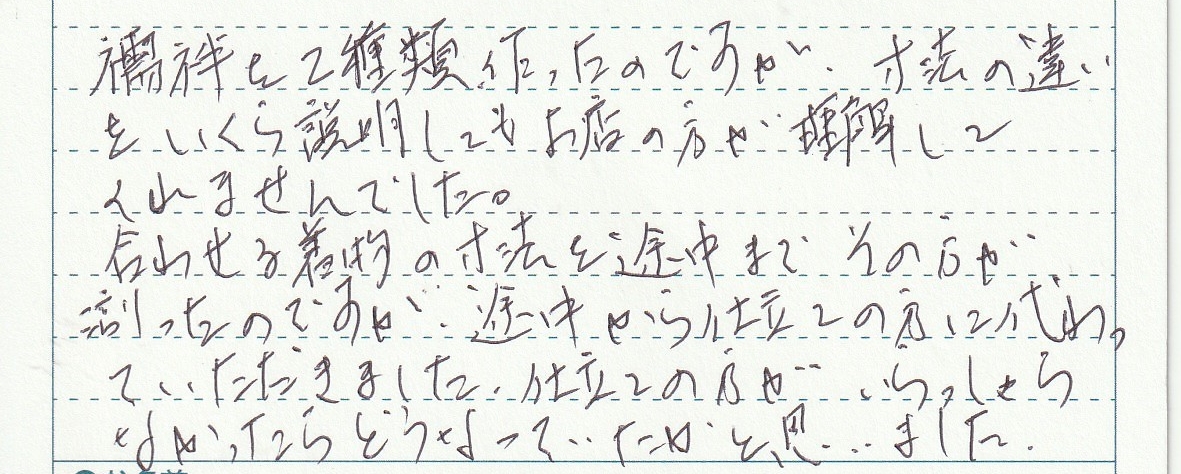 襦袢を2種類作ったのですが、寸法の違い
をいくら説明してもお店の方が理解して
くれませんでした。
合わせる着物の寸法を途中までその方が
測ったのですが、途中から仕立ての方に代わっ
ていただきました。仕立ての方がいらっしゃら
なかったらどうなっていたかと思いました。